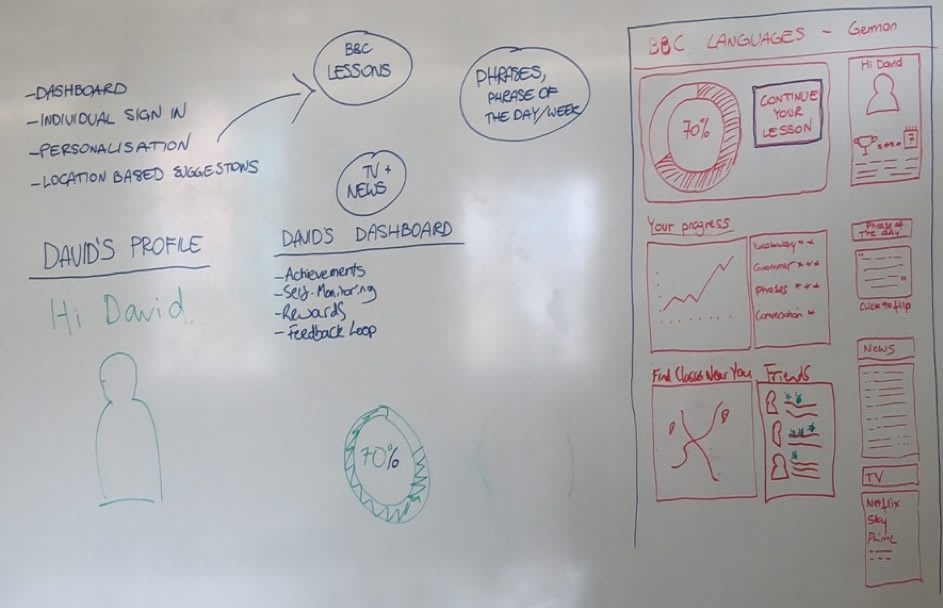 -DASHBOARD
-INDIVIDUAL SIGN IN
-PERSONALISATION
-LOCATION BASED SUGGESTIONS
BBC
LESSONS
PHRASES,
PHRASE OF
THE DAY/WEEK
TV +
NEWS
DAVID'S PROFILE
Hi David.
DAVID'S DASHBOARD
-Achievements
-Self-Monitoring
-Rewards
-Feedback Loop
70%
BBC LANGUAGES - German
70%
CONTINUE
YOUR
LESSON
Hi David
7
Your progress
Vocabulary * *
Grammar * * *
Phrases * * *
Conversation *
Phrase of
The day
Click to flip
Find Classes Near You
Friends
NEWS
TV
Netflix
Sky
Prime